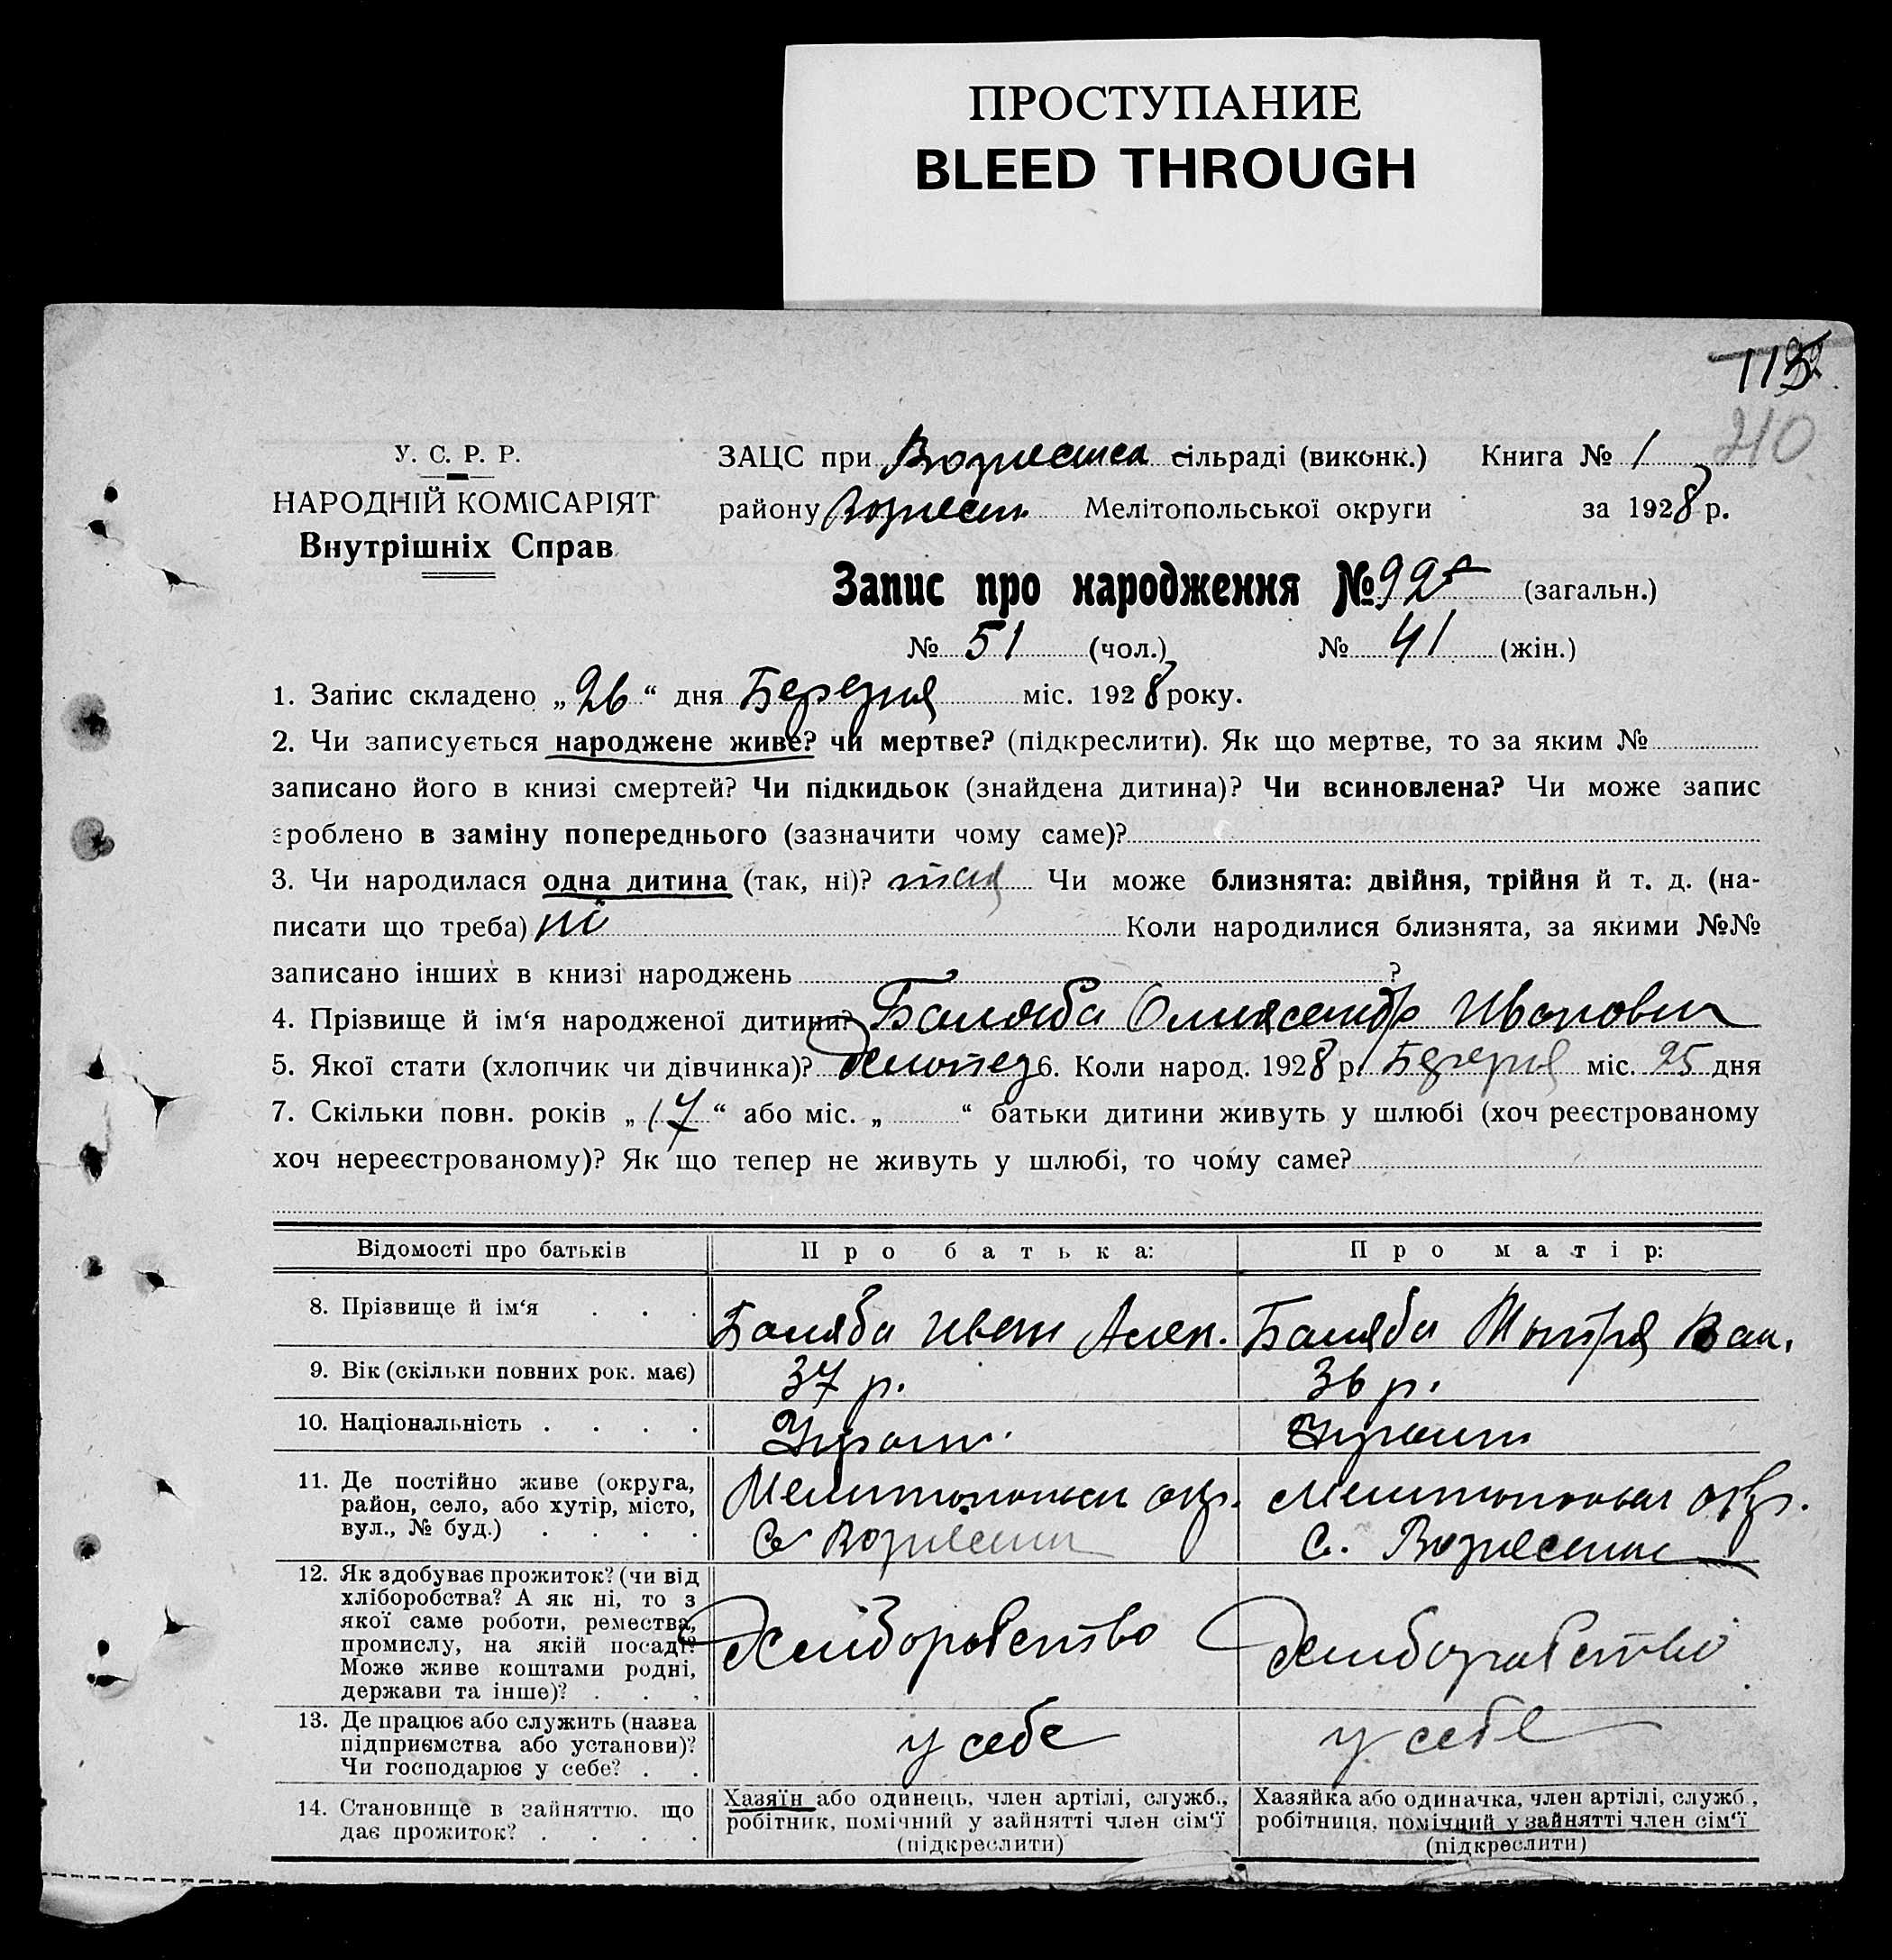 ПРОСТУПАНИЕ
BLEED THROUGH
113
210
У. С. Р. Р.
НАРОДНІЙ КОМІСАРІЯТ
Внутрішніх Справ
ЗАЦС при Вознесенск сільраді (виконк.) Книга № 1
району Вознесен Мелітопольської округи за 1928 р.
Запис про народження № 92 (загальн.)
№ 51 (чол.) № 41 (жін.)
1. Запис складено „26“ дня Березня міс. 1928 року.
2. Чи записується народжене живе? чи мертве? (підкреслити). Як що мертве, то за яким №
записано його в книзі смертей? Чи підкидьок (знайдена дитина)? Чи всиновлена? Чи може запис
зроблено в заміну попереднього (зазначити чому саме)?
3. Чи народилася одна дитина (так, ні)? так Чи може близнята: двійня, трійня й т. д. (на-
писати що треба) ні Коли народилися близнята, за якими №№
записано інших в книзі народжень ?
4. Прізвище й ім‘я народженої дитини? Баляба Олександр Иванович
5. Якої стати (хлопчик чи дівчинка)? Хлопец 6. Коли народ. 1928 р. Березня міс. 25 дня
7. Скільки повн. років „17“ або міс. „ “ батьки дитини живуть у шлюбі (хоч реєстрованому
хоч нереєстрованому)? Як що тепер не живуть у шлюбі, то чому саме?
Відомості про батьків Про батька: Про матір:
8. Прізвище й ім‘я . . . Баляба Иван Алек. Баляба Мотря
9. Вік (скільки повних рок. має) 37 р. 36 р.
10. Національність . . . . Украин. Украин
11. Де постійно живе (округа,
район, село, або хутір, місто,
вул., № буд.) . . . .
Мелитопольск окр.
С Вознесен
Мелитопольск окр.
С. Вознесенк
12. Як здобуває прожиток? (чи від
хліборобства? А як ні, то з
якої саме роботи, ремества,
промислу, на якій посаді?
Може живе коштами родні,
держави та інше)? . . .
Хлиборобство
Хлиборобство
13. Де працює або служить (назва
підприємства або установи)?
Чи господарює у себе? . .
у себе
у себе
14. Становище в зайняттю, що
дає прожиток? . . . .
Хазяїн або одинець, член артілі, служб.,
робітник, помічний у зайнятті член сім‘ї
(підкреслити)
Хазяйка або одиначка, член артілі, служб.,
робітниця, помічний у зайнятті член сім‘ї
(підкреслити)